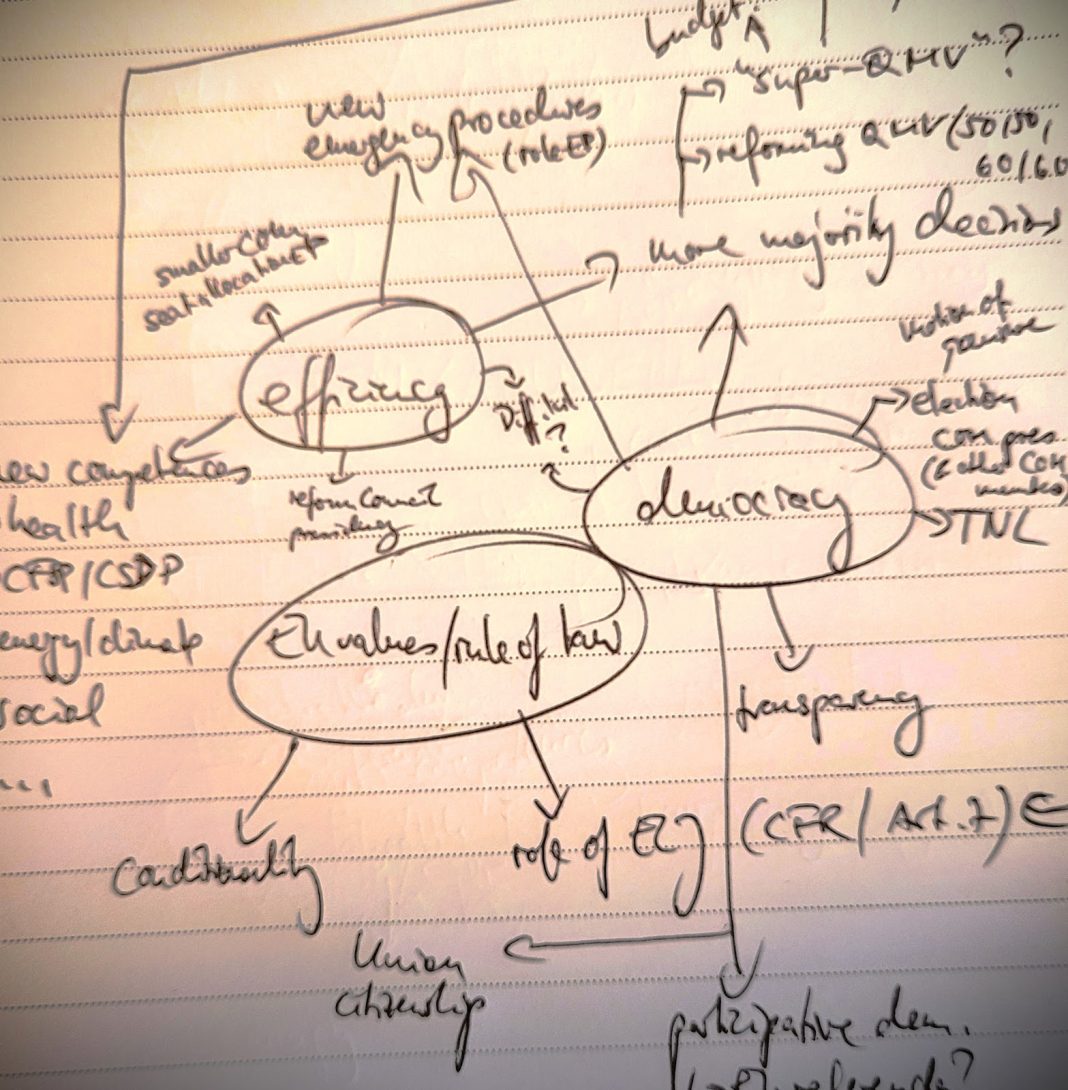 budget
"super-QMV"?
new
emergency procedures
(role EP)
reforming QMV (50/50,
60/60
more majority decisions
smaller COM
seat allocation EP
motion of
censure
efficiency
election
COM pres
(& other COM
members)
new competences
health
CFSP/CSDP
energy/climate
social
...
reform Council
presidency
democracy
TNL
EU values/rule of law
transparency
conditionality
role of ECJ (CFR/Art. 7)
Union
citizenship
participative dem.
referenda?